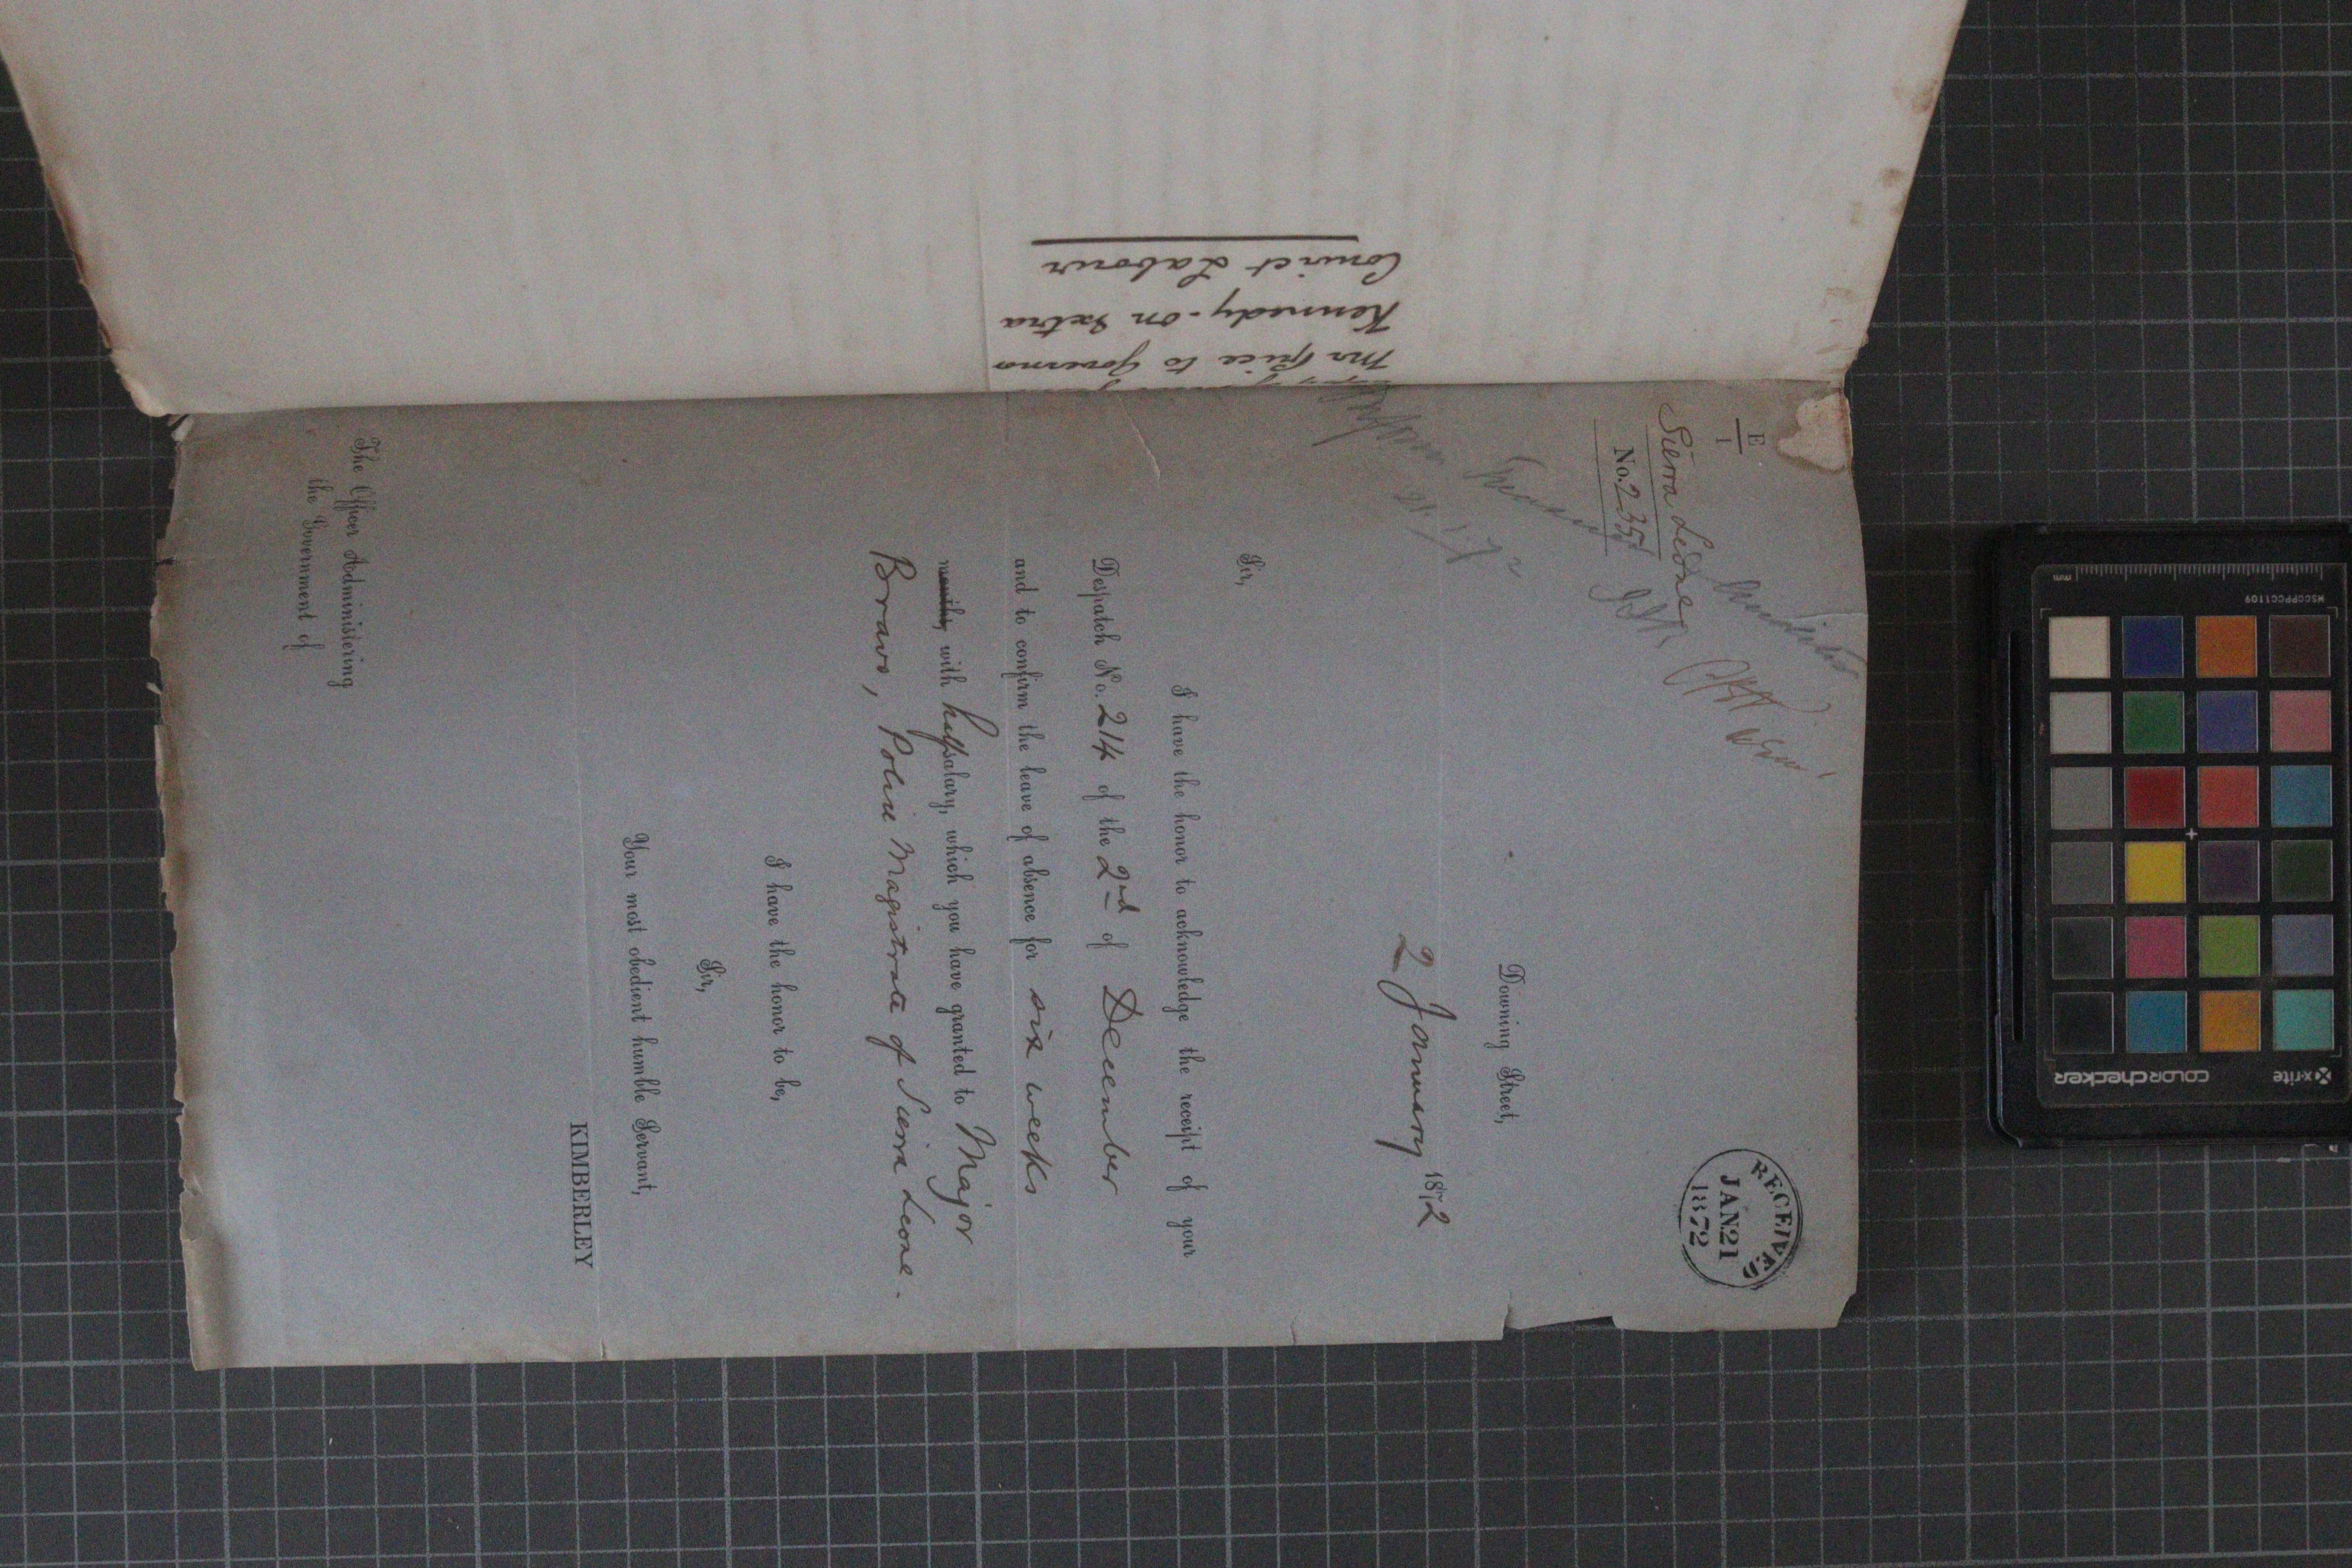 E
1
Sierra Leone
No. 235
RECEIVED
JAN 21
1872
Downing Street,
2 January 1872
Sir,
I have the honor to acknowledge the receipt of your
Despatch No. 214 of the 2nd of December
and to confirm the leave of absence for six weeks
months, with half salary, which you have granted to Major
Bravo, Police Magistrate of Sierra Leone.
I have the honor to be,
Sir,
Your most obedient humble Servant,
KIMBERLEY
The Officer Administering
the Government of
Mr Price to Governor
Kennedy - on Extra
Convict Labour
MSCCPPCC1109
mm
x-rite
colorchecker